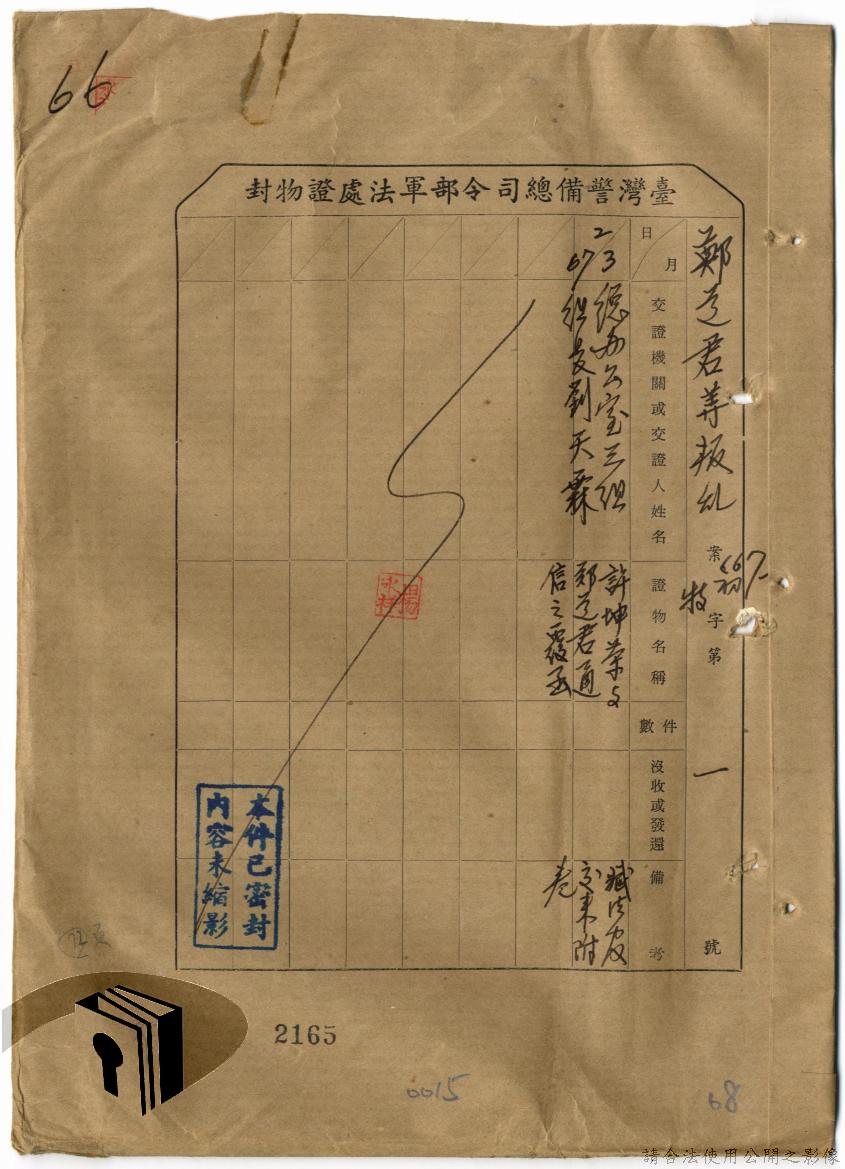 66
臺灣警備總司令部軍法處證物封
鄭道君等叛乱
案
字第
特
一
號
月
日
交證機關或交證人姓名
證物名稱
件數
沒收或發還
備考
2 3
67
總办公室三組
組長劉天霖
許坤荣与
鄭道君通
信之覆函
交来附
卷
本件已密封
內容未縮影
2165
0015
68
請合法使用公開之影像